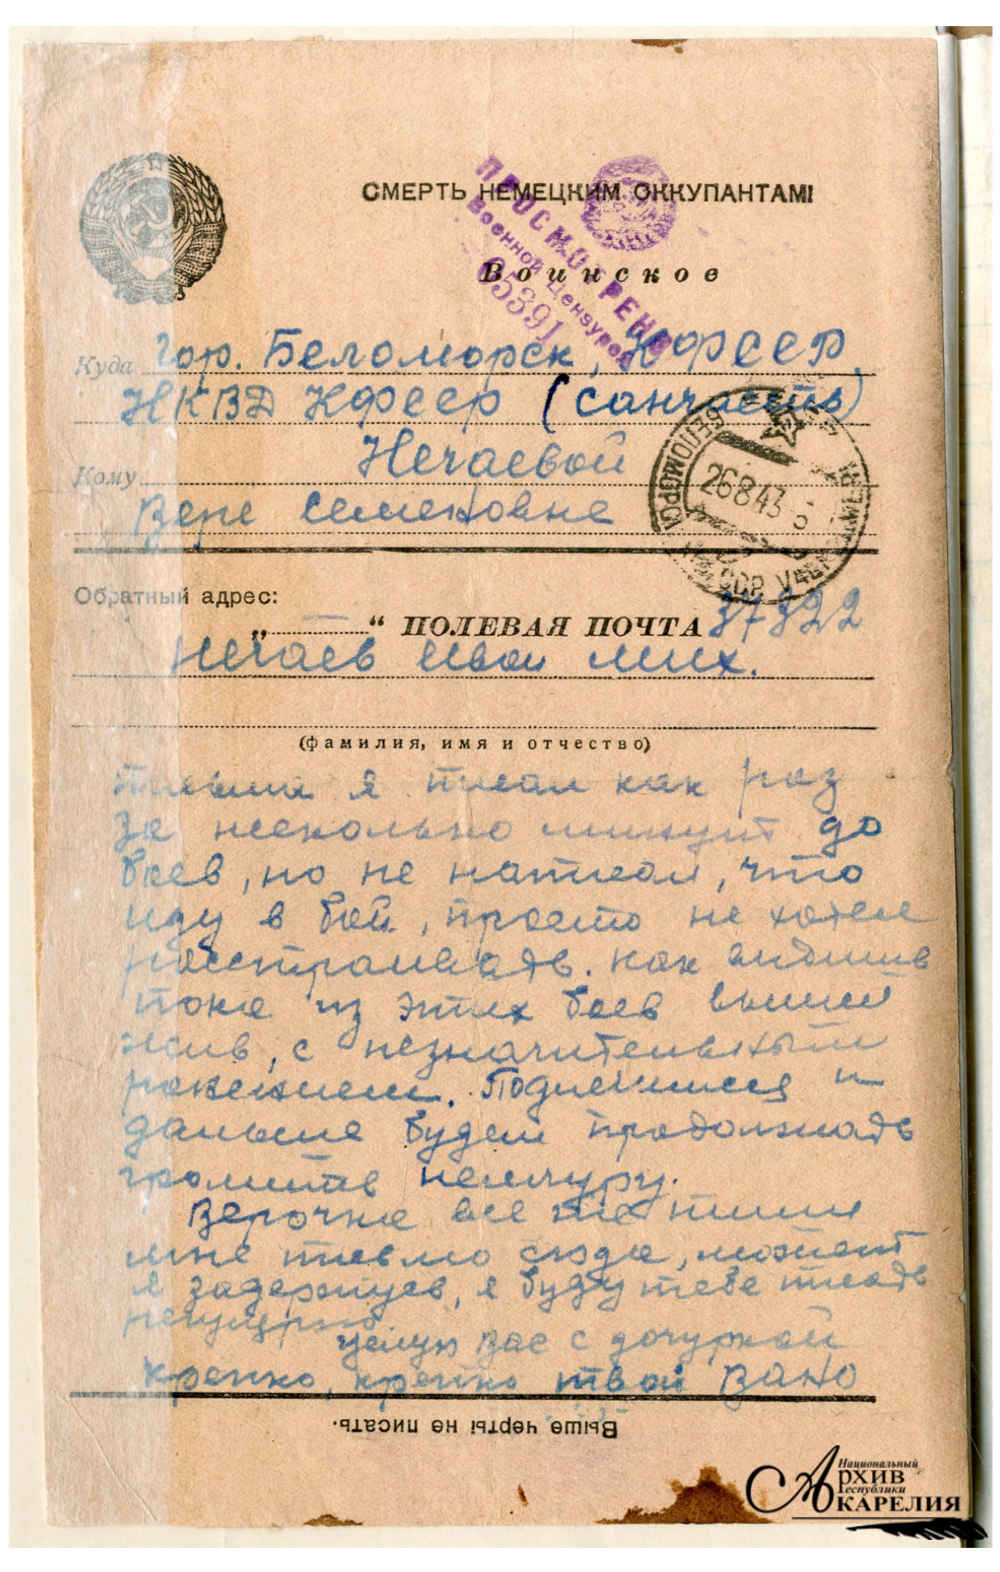 СМЕРТЬ НЕМЕЦКИМ ОККУПАНТАМ!
ПРОСМОТРЕНО
Военной Цензурой
05391
Воинское
Куда гор. Беломорск, КФССР
НКВД КФССР (санчасть)
Кому Нечаевой
Вере Семеновне
БЕЛОМОРСК
26 8 43
Обратный адрес:
„ “ ПОЛЕВАЯ ПОЧТА 37322
Нечаев Иван Мих.
(фамилия, имя и отчество)
письма я писал как раз
за несколько минут до
боев, но не написал, что
иду в бой, просто не хотел
расстраивать. Как видишь
пока из этих боев вышел
жив, с незначительным
ранением. Подлечимся и
дальше будем продолжать
громить немчуру.
Верочка все же пиши
мне письмо сюда, может
я задержусь, я буду тебе писать
целую вас с дочуркой
крепко, крепко твой Вано
Выше черты не писать.
Национальный
АРХИВ
Республики
КАРЕЛИЯ